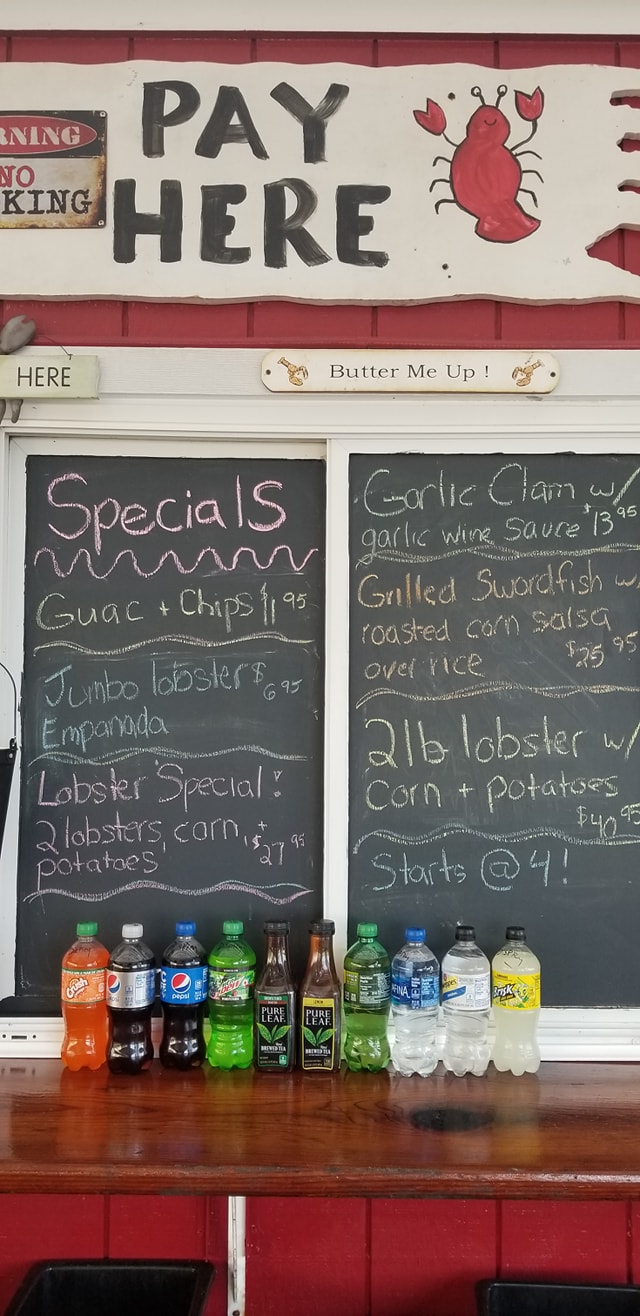 PAY
HERE
RNING
NO
KING
HERE
Butter Me Up !
Specials
Guac + Chips $11 95
Jumbo lobster $6.95
Empanada
Lobster Special!
2 lobsters, corn, +
potatoes $27 95
Garlic Clam w/
garlic wine sauce $13 95
Grilled Swordfish w
roasted corn salsa
over rice $25 95
2lb lobster w/
corn + potatoes
$40 95
Starts @ 4!
Crush
pepsi
pepsi
PURE
LEAF
BREWED TEA
PURE
LEAF
BREWED TEA
FINA
Brisk